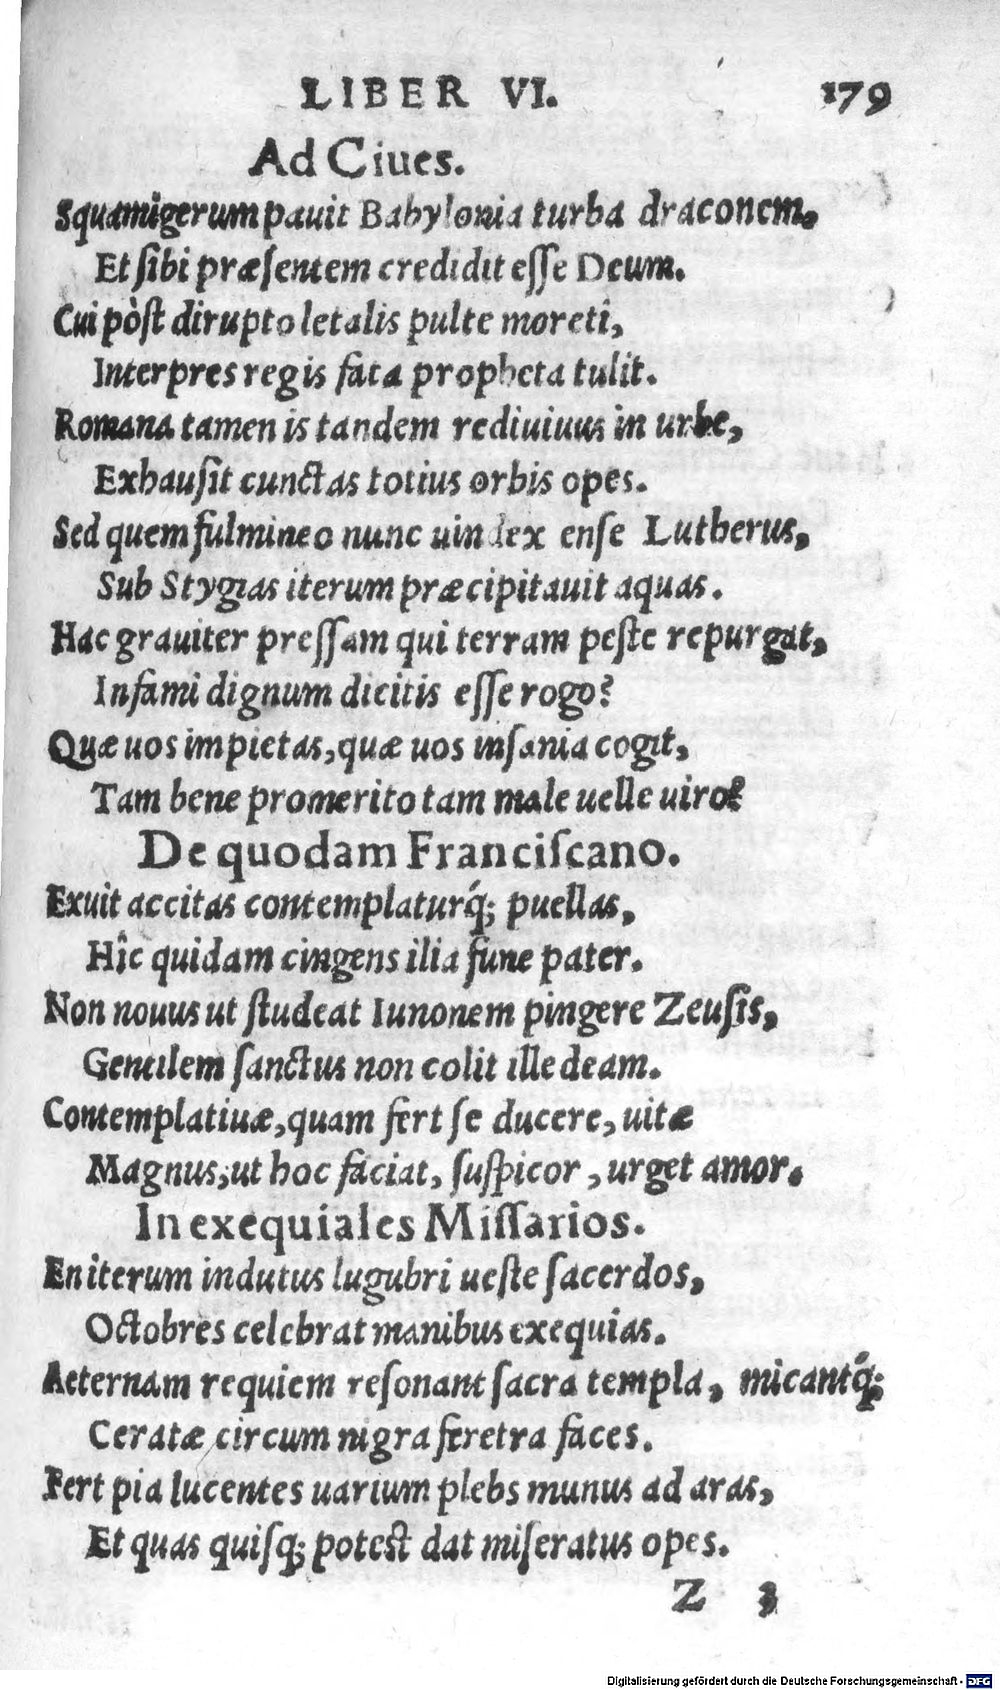 LIBER VI. 179
Ad Ciues.
Squamigerum pauit Babylonia turba draconem,
Et ſibi præſentem credidit eſſe Deum.
Cui pòſt dirupto letalis pulte moreti,
Interpres regis fata propheta tulit.
Romana tamen is tandem rediuiuus in urbe,
Exhauſit cunctas totius orbis opes.
Sed quem fulmineo nunc uindex enſe Lutherus,
Sub Stygias iterum præcipitauit aquas.
Hac grauiter preſſam qui terram peſte repurgat,
Infami dignum dicitis eſſe rogo?
Quæ uos impietas, quæ uos inſania cogit,
Tam bene promerito tam male uelle uiro?
De quodam Franciſcano.
Exuit accitas contemplaturq́; puellas,
Hîc quidam cingens ilia fune pater.
Non nouus ut ſtudeat Iunonem pingere Zeuſis,
Gentilem ſanctus non colit ille deam.
Contemplatiuæ, quam fert ſe ducere, uitæ
Magnus, ut hoc faciat, ſuſpicor, urget amor.
In exequiales Miſſarios.
En iterum indutus lugubri ueſte ſacerdos,
Octobres celebrat manibus exequias.
Aeternam requiem reſonant ſacra templa, micantq́;
Ceratæ circum nigra feretra faces.
Fert pia lucentes uarium plebs munus ad aras,
Et quas quiſq; potest dat miſeratus opes.
Z 3
Digitalisierung gefördert durch die Deutsche Forschungsgemeinschaft - DFG